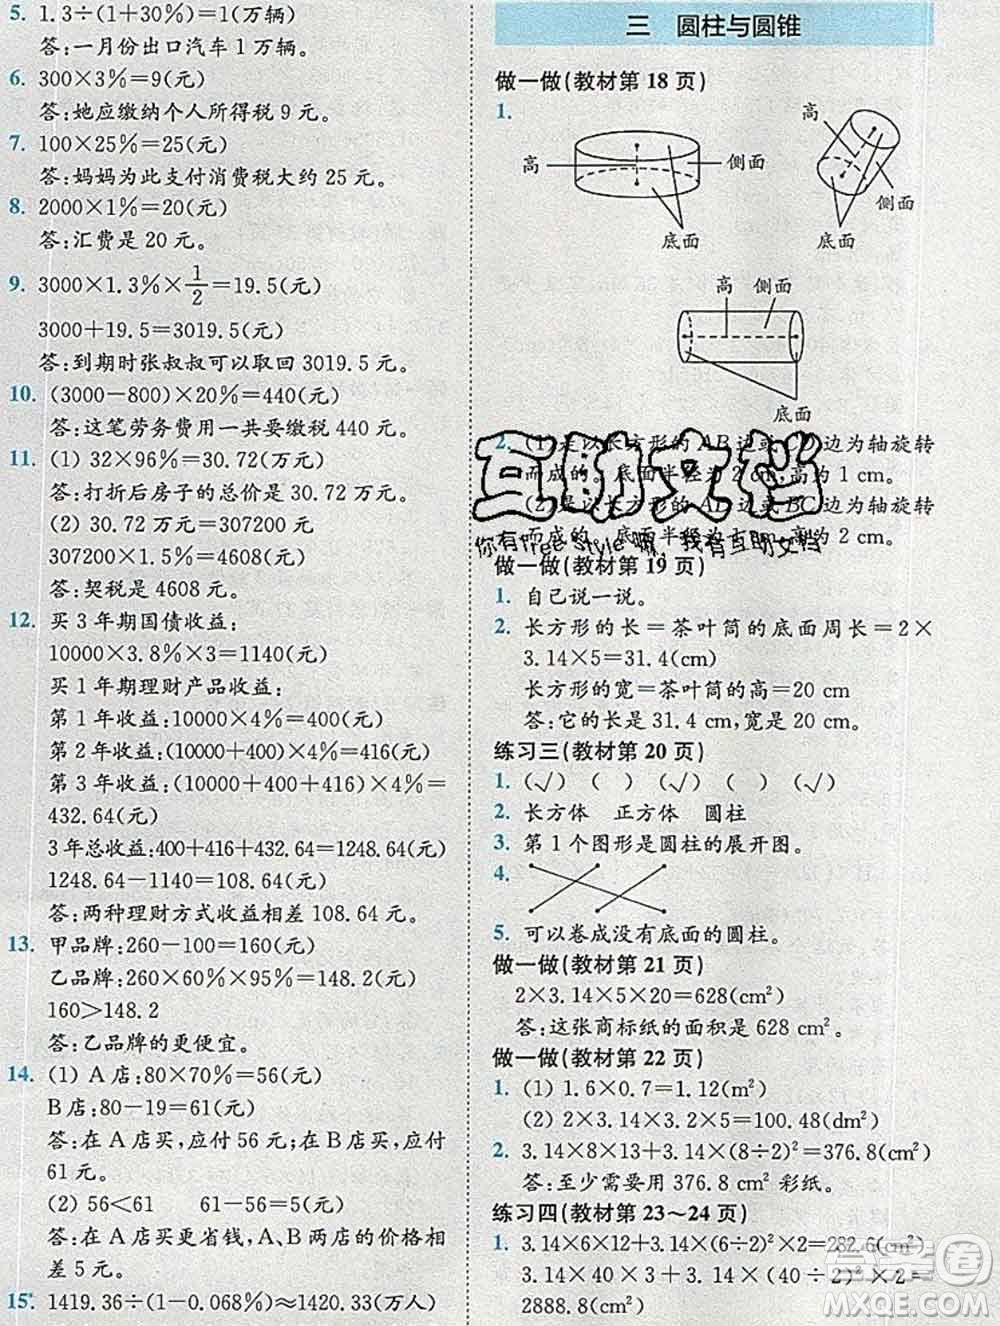 5. 1.3÷(1+30%)=1(万辆)
答:一月份出口汽车1万辆。
6. 300×3%=9(元)
答:她应缴纳个人所得税9元。
7. 100×25%=25(元)
答:妈妈为此支付消费税大约25元。
8. 2000×1%=20(元)
答:汇费是20元。
9. 3000×1.3%×1/2=19.5(元)
3000+19.5=3019.5(元)
答:到期时张叔叔可以取回3019.5元。
10. (3000-800)×20%=440(元)
答:这笔劳务费用一共要缴税440元。
11. (1) 32×96%=30.72(万元)
答:打折后房子的总价是30.72万元。
(2) 30.72万元=307200元
307200×1.5%=4608(元)
答:契税是4608元。
12. 买3年期国债收益:
10000×3.8%×3=1140(元)
买1年期理财产品收益:
第1年收益:10000×4%=400(元)
第2年收益:(10000+400)×4%=416(元)
第3年收益:(10000+400+416)×4%=
432.64(元)
3年总收益:400+416+432.64=1248.64(元)
1248.64-1140=108.64(元)
答:两种理财方式收益相差108.64元。
13. 甲品牌:260-100=160(元)
乙品牌:260×60%×95%=148.2(元)
160>148.2
答:乙品牌的更便宜。
14. (1) A店:80×70%=56(元)
B店:80-19=61(元)
答:在A店买,应付56元;在B店买,应付
61元。
(2) 56<61 61-56=5(元)
答:在A店买更省钱,A、B两店的价格相
差5元。
15. 1419.36÷(1-0.068%)≈1420.33(万人)
三 圆柱与圆锥
做一做(教材第18页)
1.
高
侧面
底面
高
侧面
底面
高 侧面
底面
2. (1)是以长方形的AB边或 边为轴旋转
而成的。底面半径为2 cm,高约1 cm。
(2)是以长方形的AD边或BC边为轴旋转
而成的 底面半径 cm,高约2 cm。
互助文档
你有freestyle嘛,我有互助文档
做一做(教材第19页)
1. 自己说一说。
2. 长方形的长=茶叶筒的底面周长=2×
3.14×5=31.4(cm)
长方形的宽=茶叶筒的高=20 cm
答:它的长是31.4 cm,宽是20 cm。
练习三(教材第20页)
1. (√) ( ) (√) ( ) (√)
2. 长方体 正方体 圆柱
3. 第1个图形是圆柱的展开图。
4.
5. 可以卷成没有底面的圆柱。
做一做(教材第21页)
2×3.14×5×20=628(cm²)
答:这张商标纸的面积是628 cm²。
做一做(教材第22页)
1. (1) 1.6×0.7=1.12(m²)
(2) 2×3.14×3.2×5=100.48(dm²)
2. 3.14×8×13+3.14×(8÷2)²=376.8(cm²)
答:至少需要用376.8 cm²彩纸。
练习四(教材第23~24页)
1. 3.14×6×12+3.14×(6÷2)²×2=282.6(cm²)
3.14×40×3+3.14×(40÷2)²×2=
2888.8(cm²)
答案圈
MXQE.COM